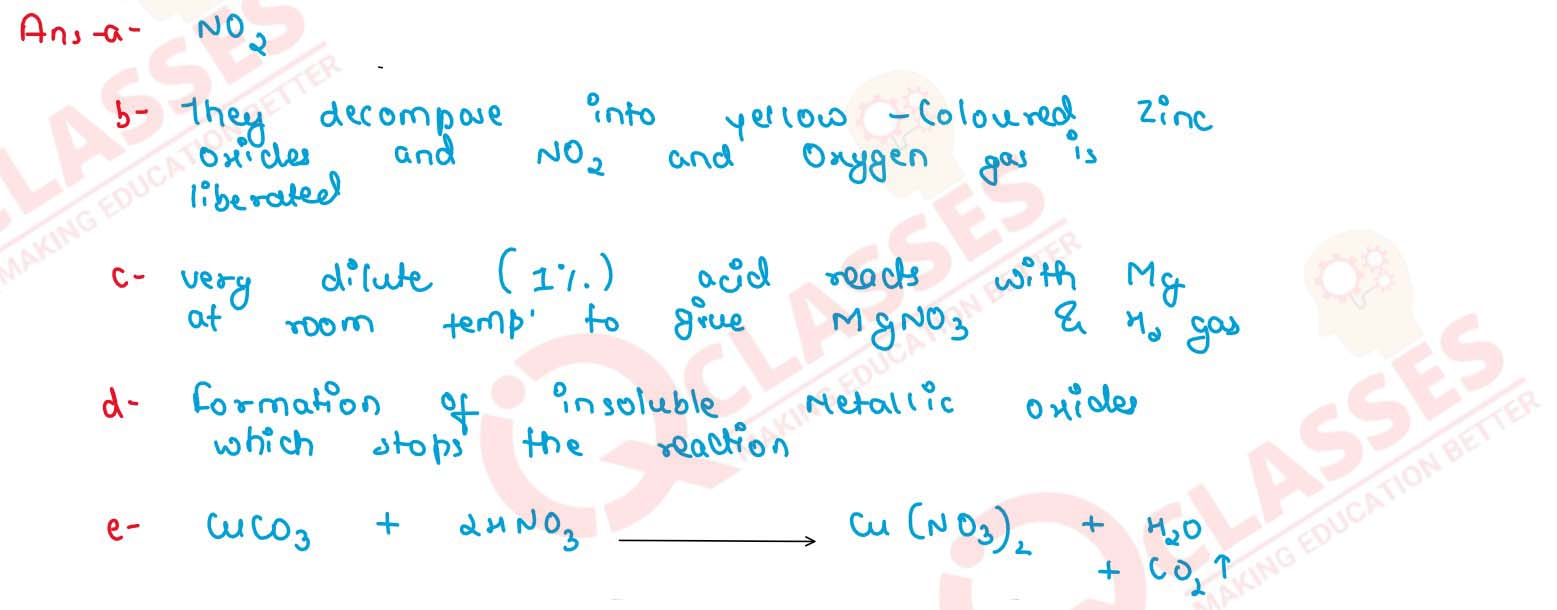 Ans-a- NO2
b- They decompose into yellow-Coloured Zinc
oxides and NO2 and Oxygen gas is
liberated
c- very dilute (1%.) acid reacts with Mg
at room temp. to give MgNO3 & H2 gas
d- Formation of insoluble Metallic oxides
which stops the reaction
e- CuCO3 + 2HNO3 ⟶ Cu(NO3)2 + H2O
+ CO2↑
CLASSES
MAKING EDUCATION BETTER
CLASSES
MAKING EDUCATION BETTER
CLASSES
MAKING EDUCATION BETTER